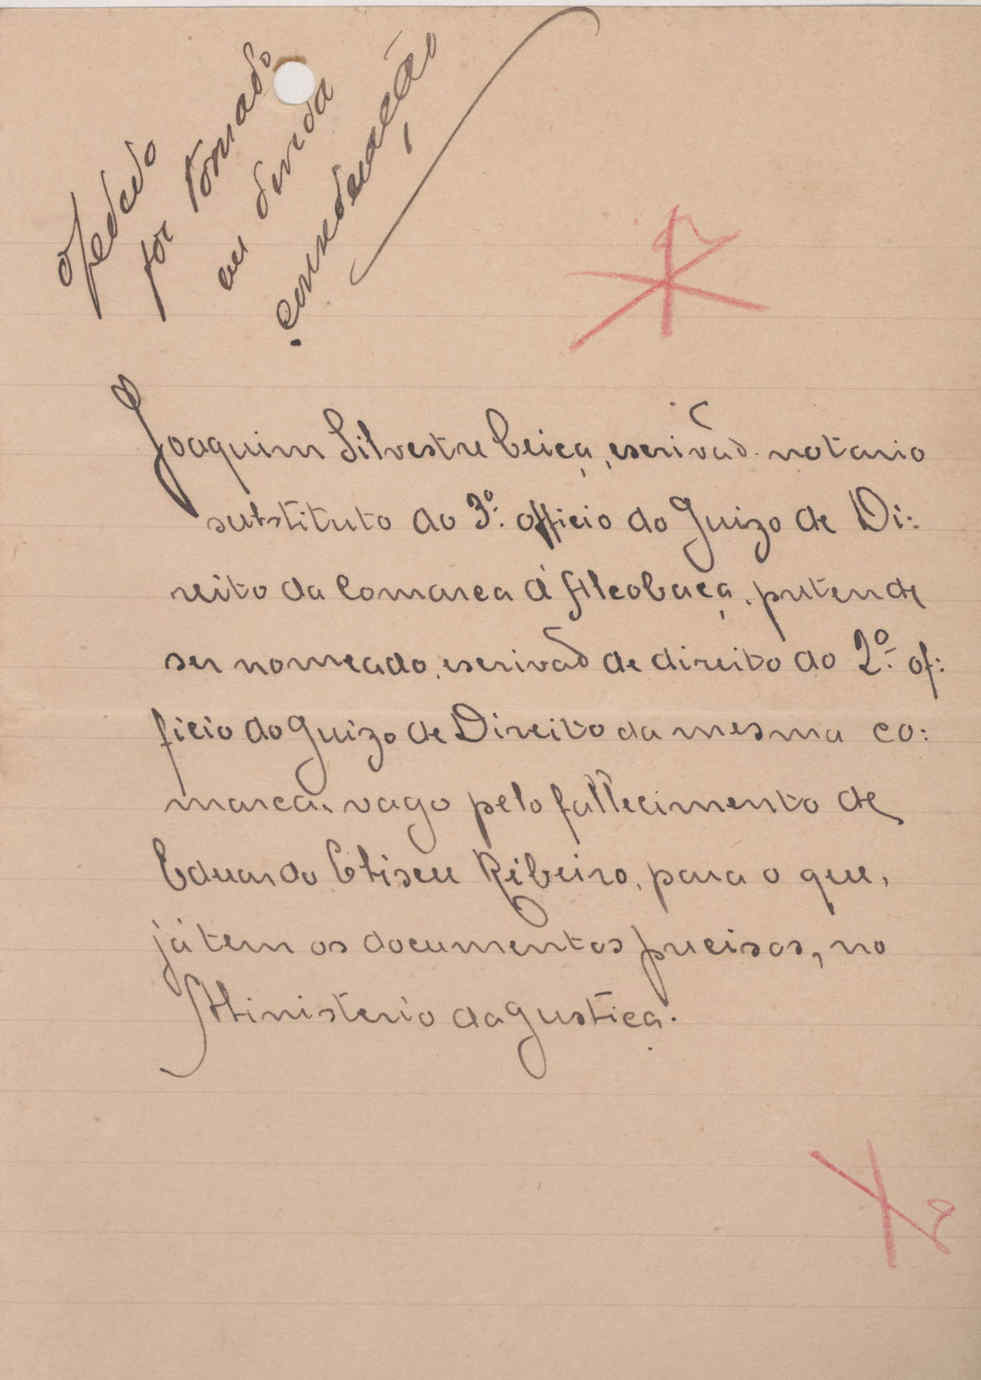 o pedido
foi tomado
em devida
consideração
Joaquim Silvestre Ceiça, escrivão notario
substituto do 3º. officio do Juizo de Di:
reito da Comarca d'Alcobaça, pretende
ser nomeado, escrivão de direito do 2º. of:
ficio do Juizo de Direito da mesma co:
marca, vago pelo fallecimento de
Eduardo Eliseu Ribeiro, para o que,
já tem os documentos precisos, no
Ministerio da Justiça.